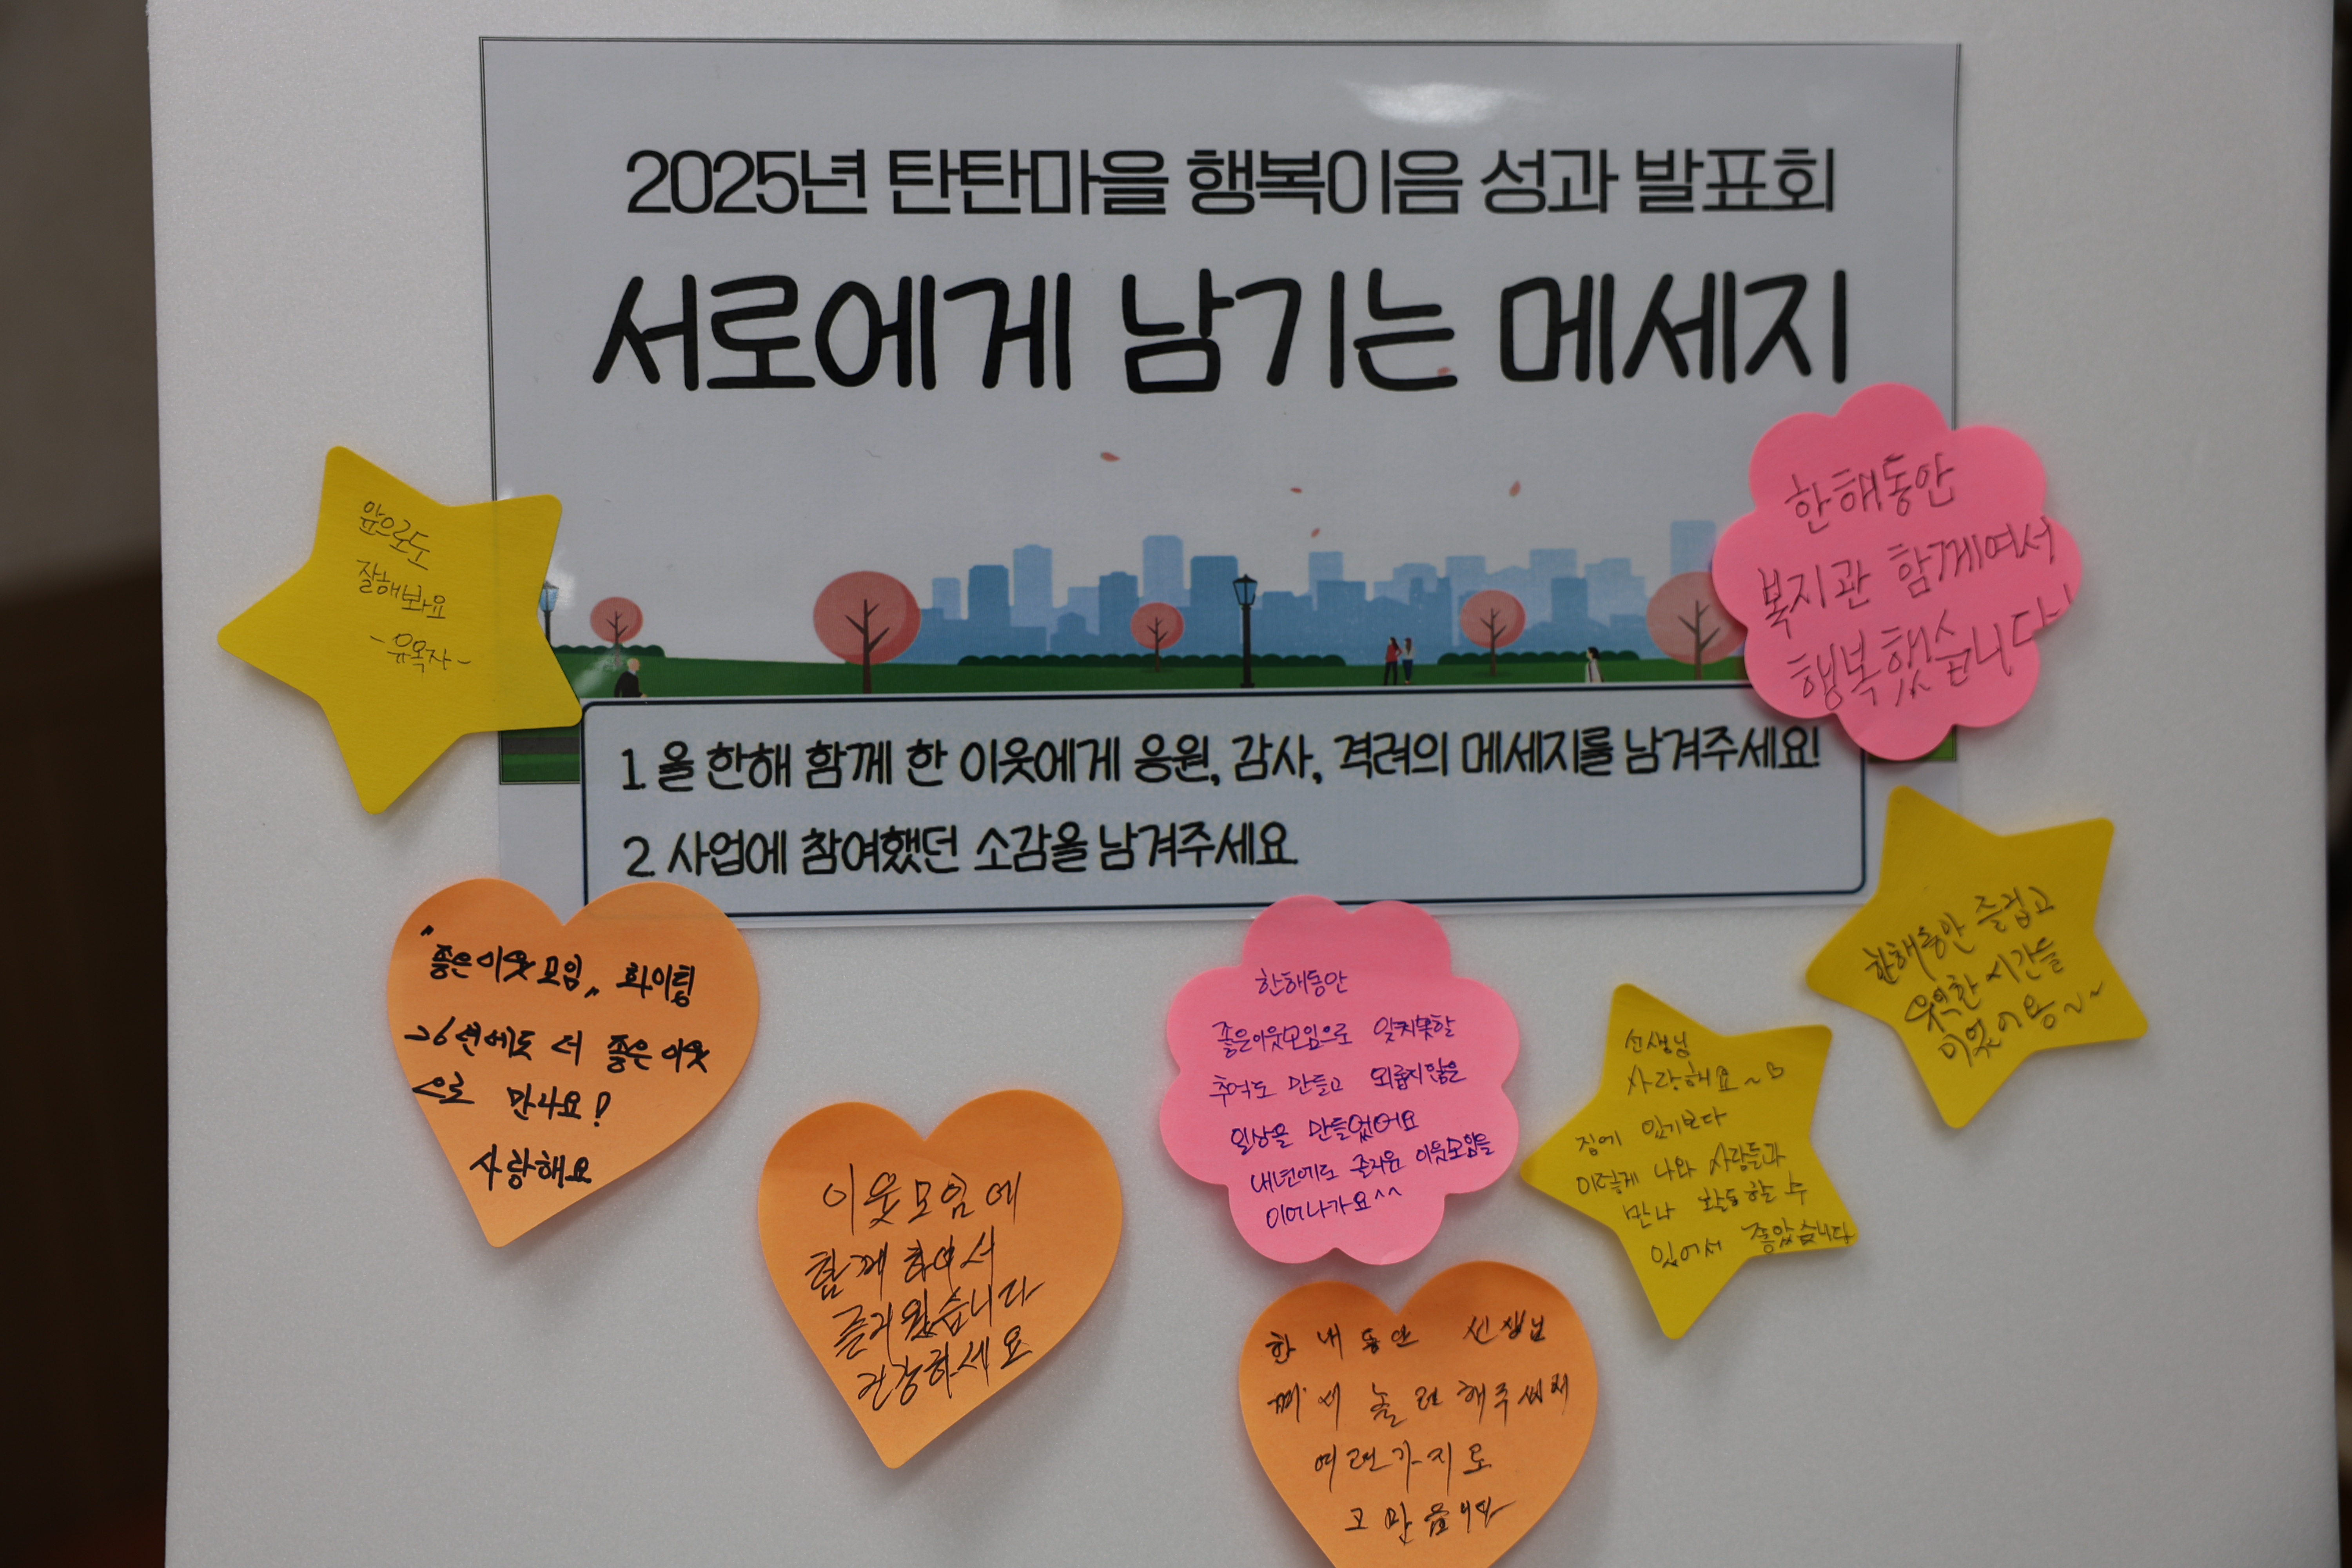 2025년 탄탄마을 행복이음 성과 발표회
서로에게 남기는 메세지
앞으로도
잘해봐요
-유옥자-
한해동안
복지관 함께여서
행복했습니다~!
1. 올 한해 함께 한 이웃에게 응원, 감사, 격려의 메세지를 남겨주세요!
2. 사업에 참여했던 소감을 남겨주세요.
"좋은이웃모임" 화이팅
26년에도 더 좋은이웃
으로 만나요!
사랑해요
이웃모임에
함께하여서
즐거웠습니다
건강하세요
한해동안
좋은이웃모임으로 잊지못할
추억도 만들고 외롭지않은
일상을 만들었어요
내년에도 즐거운 이웃모임을
이어나가요^^
선생님
사랑해요~♡
집에 있기보다
이렇게 나와 사람들과
만나 활동할 수
있어서 좋았습니다
한해동안 즐겁고
유익한 시간들
이었어용~~
한 해 동안 선생님
께서 놀러해주
여러가지로
고맙습니다